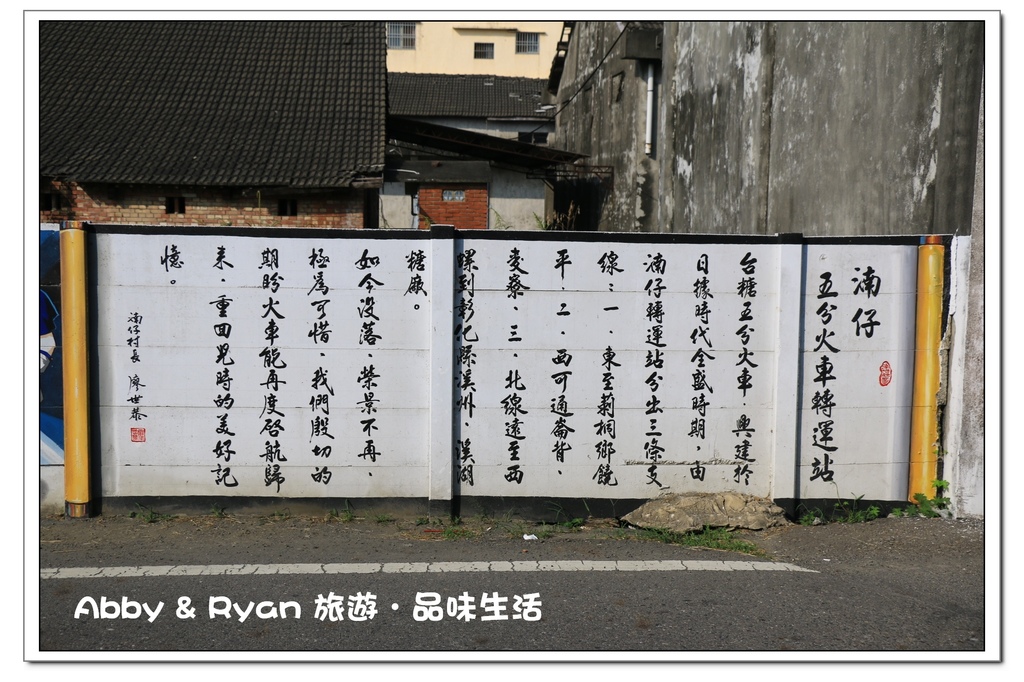 湳仔
五分火車轉運站
台糖五分火車，興建於
日據時代全盛時期，由
湳仔轉運站分出三條支
線：一、東至莿桐鄉饒
平、二、西可通崙背、
麥寮、三、北線遠至西
螺到彰化縣溪州、溪湖
糖廠。
如今没落、榮景不再，
極為可惜，我們殷切的
期盼火車能再度啓航歸
來，重回兒時的美好記
憶。
湳仔村長 廖世恭
Abby & Ryan 旅遊・品味生活